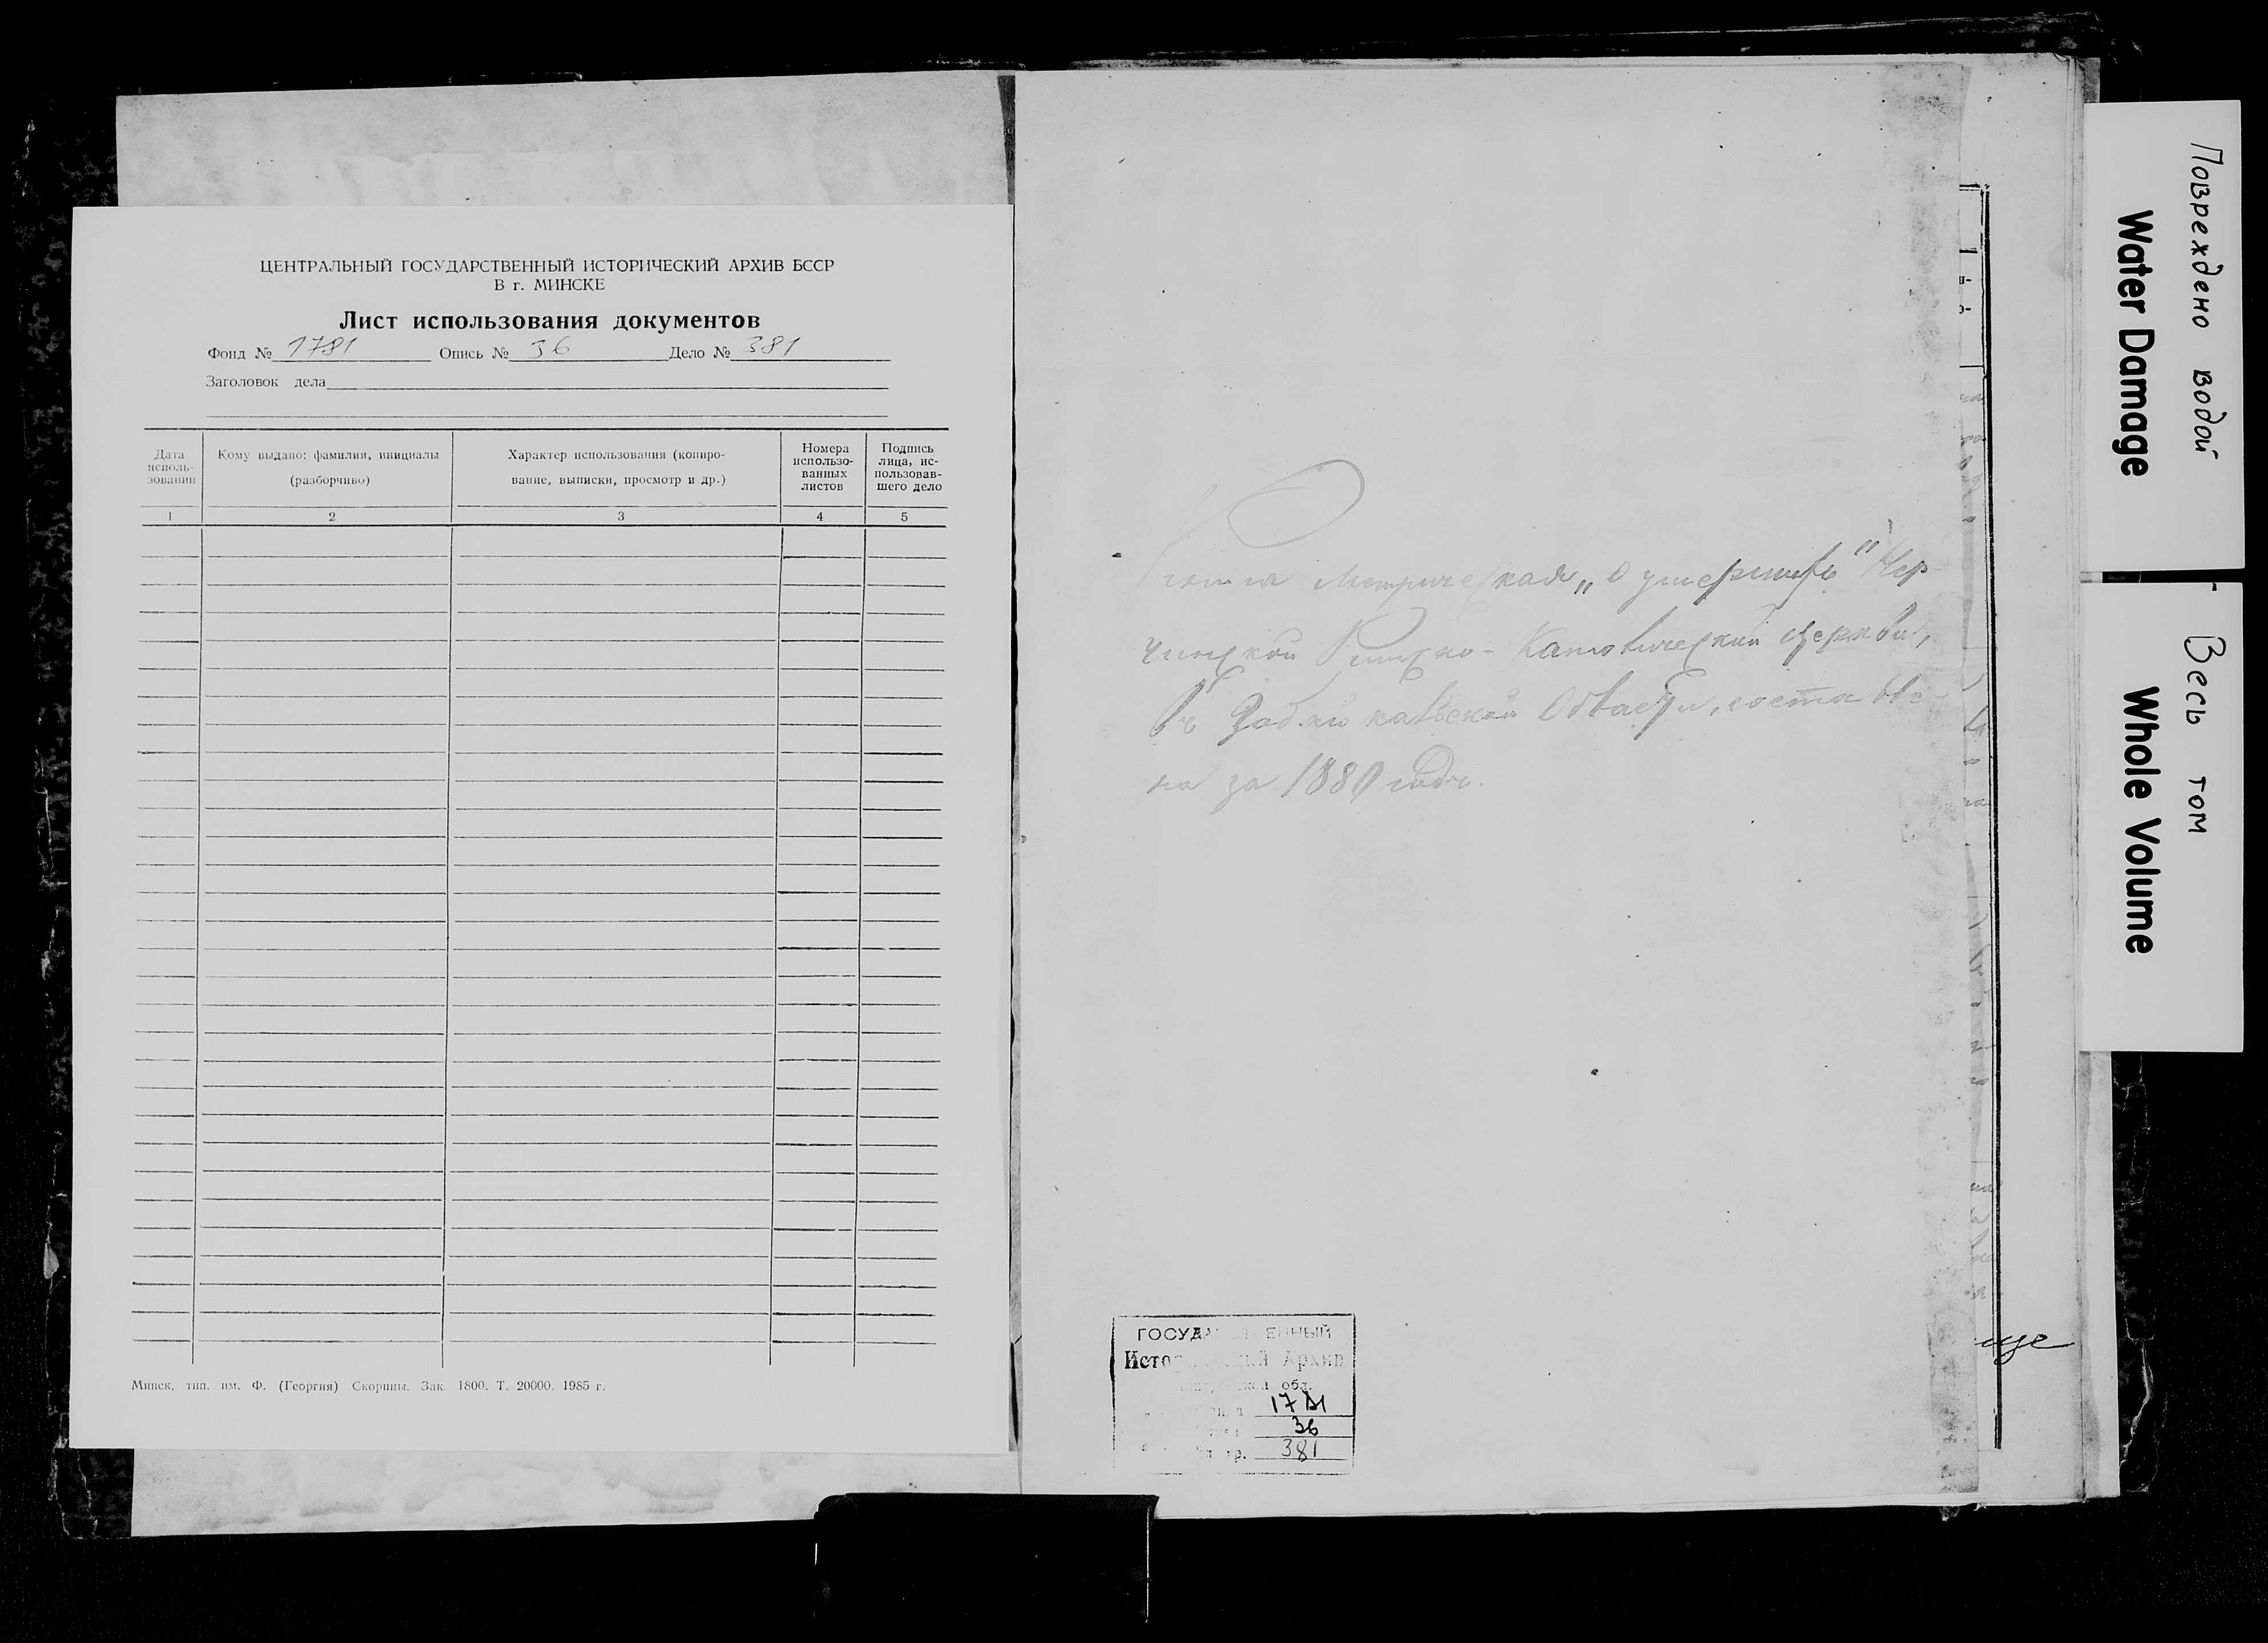 ЦЕНТРАЛЬНЫЙ ГОСУДАРСТВЕННЫЙ ИСТОРИЧЕСКИЙ АРХИВ БССР
В г. МИНСКЕ
Лист использования документов
Фонд № 1781 Опись № 36 Дело № 381
Заголовок дела
Дата исполь-
зования
Кому выдано: фамилия, инициалы
(разборчиво)
Характер использования (копиро-
вание, выписки, просмотр и др.)
Номера
использо-
ванных
листов
Подпись
лица, ис-
пользовав-
шего дело
1 2 3 4 5
Минск, тип. им. Ф. (Георгия) Скорины. Зак. 1800. Т. 20000. 1985 г.
Метрическая „О умершихъ" Нер-
чинской Римско-Католической Церкви,
въ Забайкальской Области, составле-
на за 1880 годъ.
Архив
обл.
1781
36
381
Повреждено водой
Water Damage
Весь том
Whole Volume